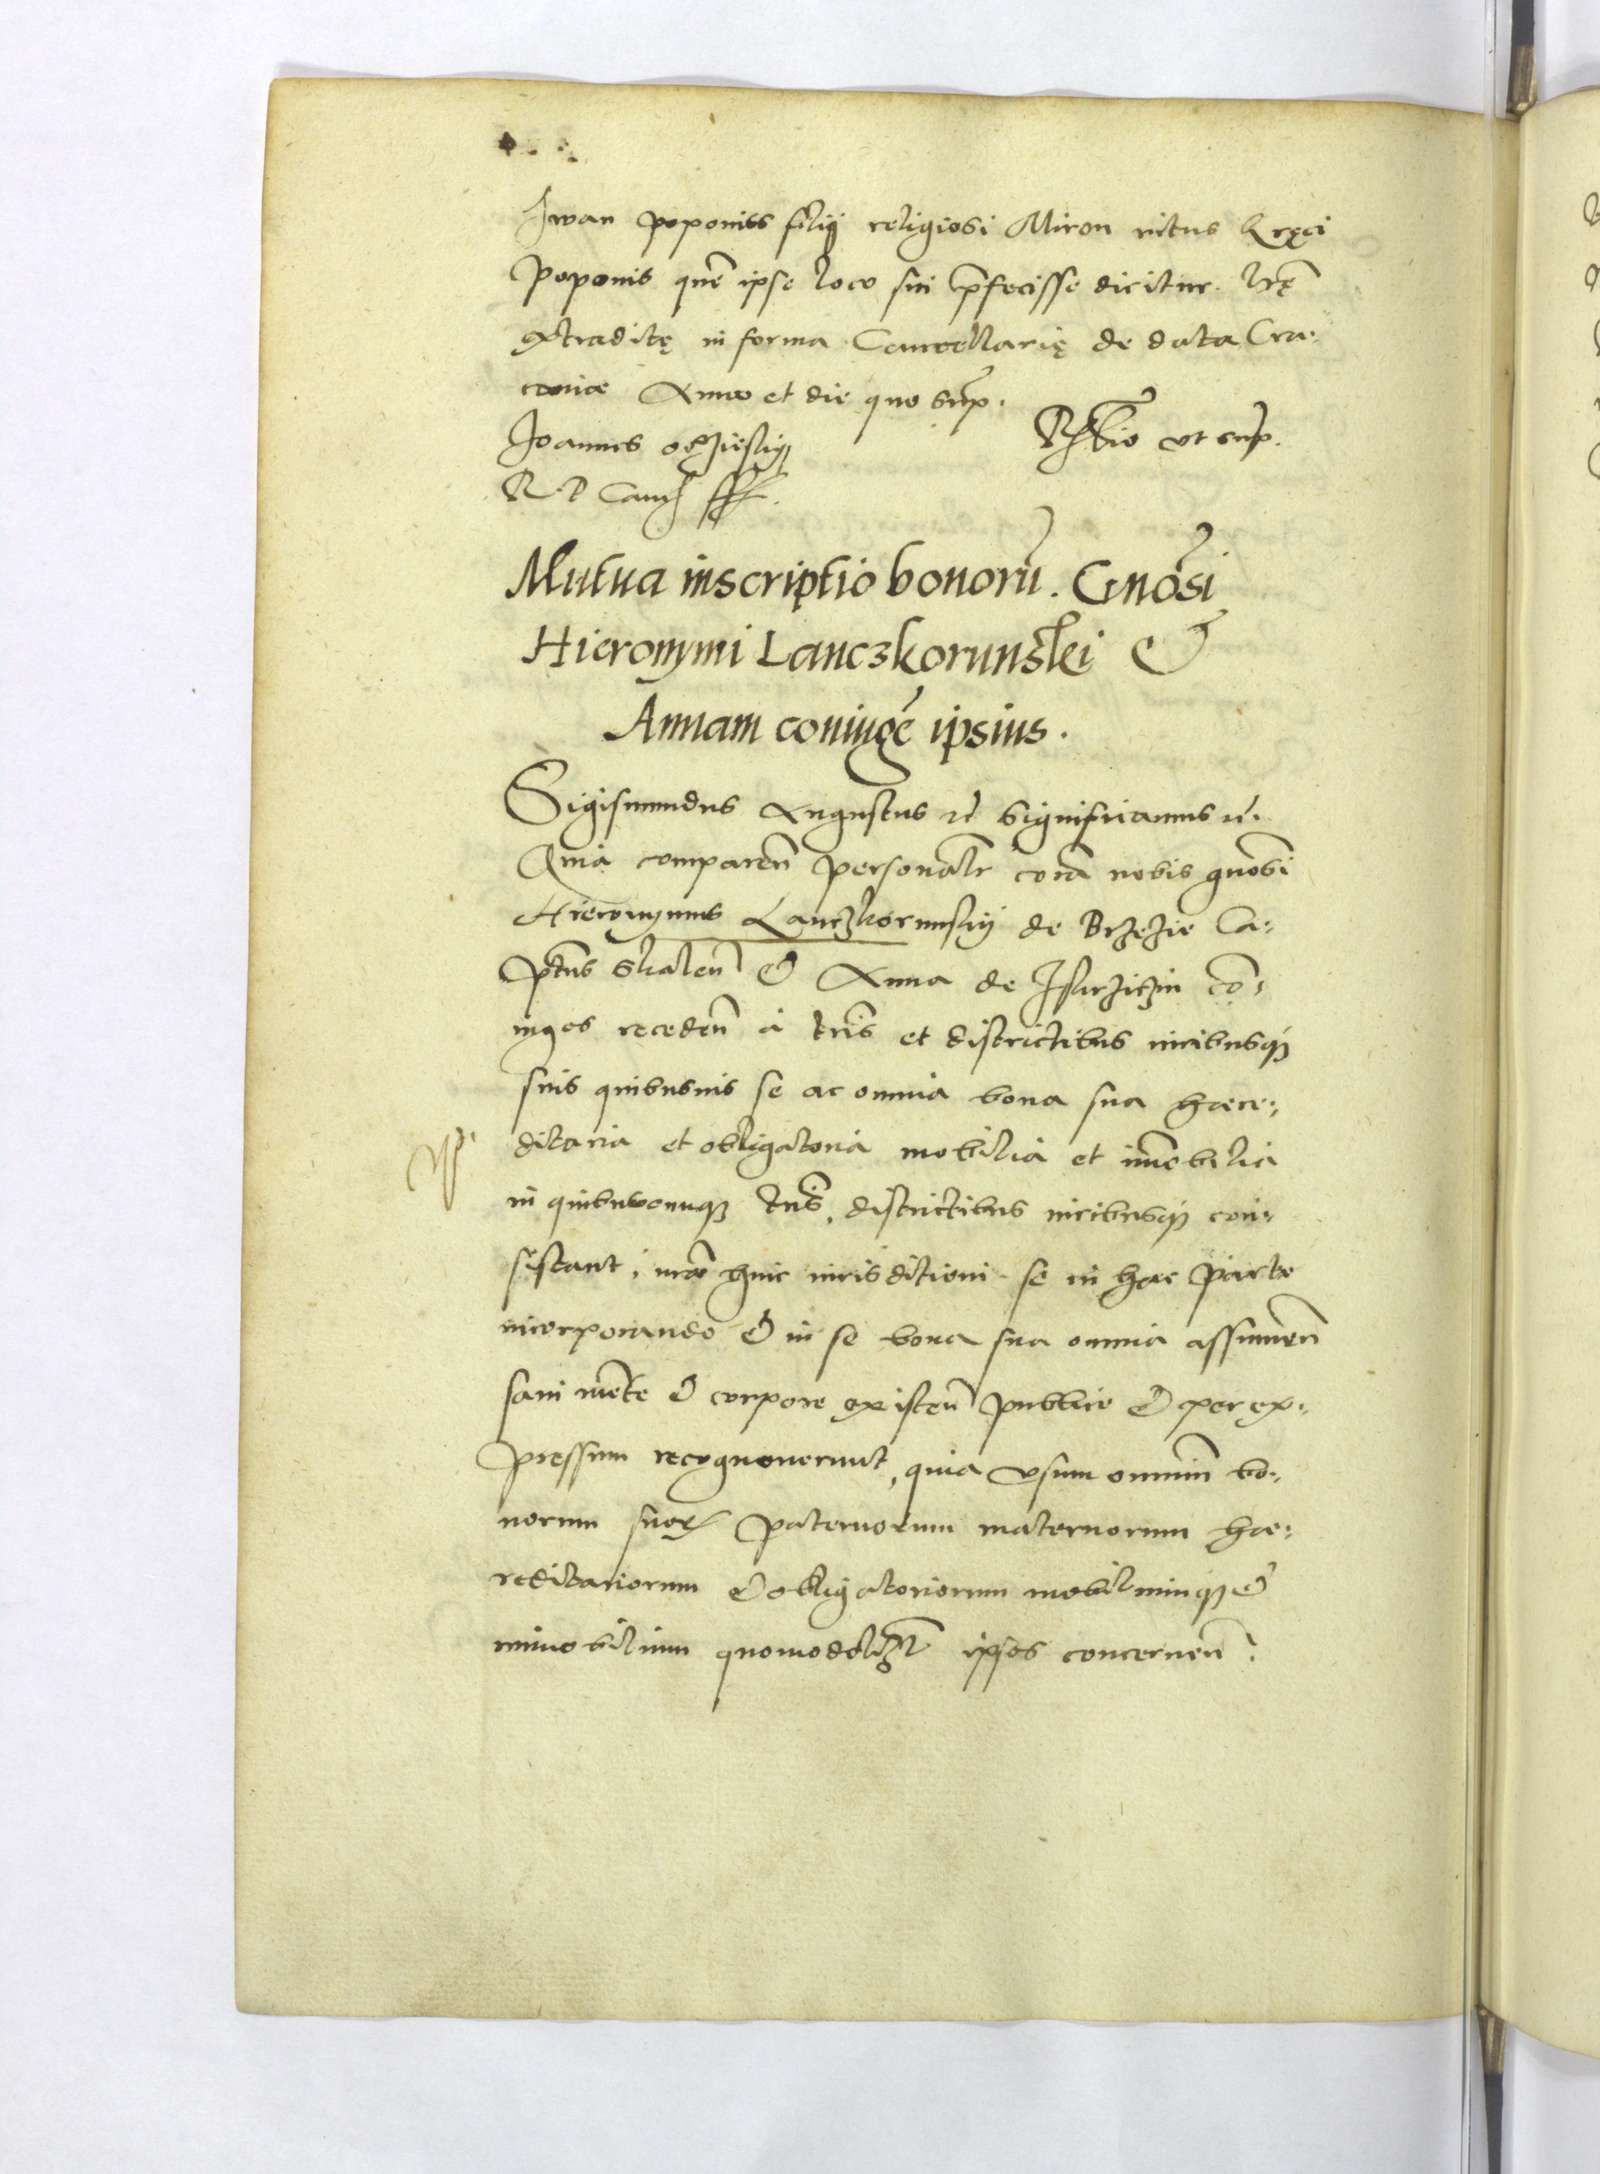 Iwan poponiss filij religiosi Miron ritus Gręci
poponis quē ipse loco sui p̄fecisse dicitur. Lrę̄
extraditę in forma Cancellarię de data Cra⸗
coviæ Anno et die quo sup̄.
Joannes oczieskij
R. P Canc̄
R̄elatio ut sup̄.
Mutua inscriptio bonorū. Gnōsi
Hieronymi Lanczkorunskei &
Annam coniugē ipsius.
Sigismundus Augustus rc̄ significamus rc̄.
Quia comparen̄ personalr̄ corā nobis gnōsi
Hieronymus Lanczkorunskij de Brzezie Ca⸗
ptn̄s skalen̄ & Anna de coō⸗
iuges receden̄ a tr̄is et districtibus iuribusq₃
suis quibusvis se ac omnia bona sua haere⸗
ditaria et obligatoria mobilia et im̄obilia
in quibuscunq₃ tr̄is, districtibus iuribusq₃ con⸗
sistant, huic iurisditioni se in hac parte
incorporando & in se bona sua omnia assumen̄
sani mēte & corpore existen̄ publice & per ex⸗
pressum recognoverunt, quia usum omniū bo⸗
norum suor₄ paternorum maternorum hae⸗
reditariorum & obligatoriorum mobiliumq₃ &
immobilium quomodolizt ipsos concernen̄.